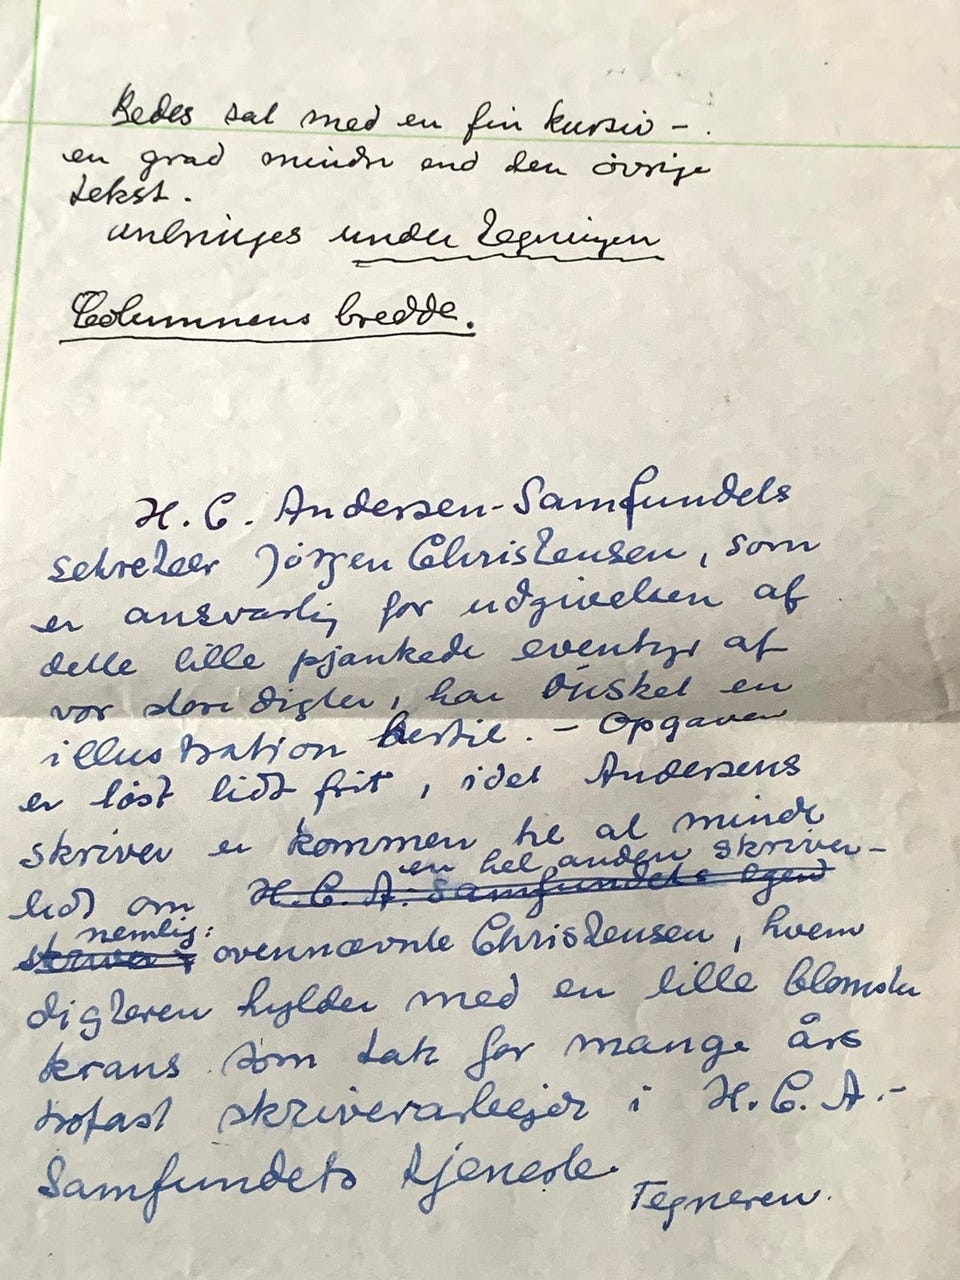 Bedes sat med en fin kursiv -.
en grad mindre end den øvrige
tekst.
anbringes under tegningen
Columnens bredde.
H. C. Andersen-Samfundets
sekretær Jörgen Christensen, som
er ansvarlig for udgivelsen af
dette lille pjankede eventyr af
vor store digter, har önsket en
illustration hertil. - Opgaven
er löst lidt frit, idet Andersens
skriver er kommen til at minde
lidt om H. C. A. Samfundets egen en hel anden skriver-
skriver : nemlig: ovennævnte Christensen, hvem
digteren hylder med en lille blomster
krans som tak for mange års
trofast skriverarbejder i H. C. A.-
Samfundets tjeneste.
Tegneren.